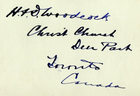 H. & D. Woodcock
Christ Church
Deer Park
Toronto
Canada